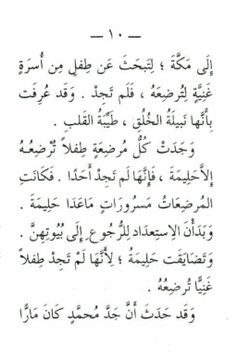 — ١٠ —
إِلَى مَكَّةَ ؛ لِتَبْحَثَ عَن طِفلٍ مِن أُسرَةٍ
غَنِيَّةٍ لِتُرضِعَهُ ، فَلَم تَجِدْ . وَقَد عُرِفَت
بِأَنَّهَا نَبِيلَةُ الخُلُقِ ، طَيِّبَةُ القَلبِ .
وَجَدَتْ كُلُّ مُرضِعَةٍ طِفلاً تُرْضِعُهُ
إِلاَّ حَلِيمَةَ ، فَإِنَّهَا لَم تَجِدْ أَحَدًا . فَكَانَتِ
المُرضِعَاتُ مَسرُورَاتٍ مَاعَدَا حَلِيمَةَ .
وَبَدَأْنَ الاِستِعدَادَ لِلرُّجُوعِ إِلَى بُيُوتِهِنَّ .
وَتَضَايَقَت حَلِيمَةُ ؛ لِأَنَّهَا لَمْ تَجِدْ طِفلاً
غَنِيًّا تُرضِعُهُ .
وَقَد حَدَثَ أَنَّ جَدَّ مُحَمَّدٍ كَانَ مَارًّا